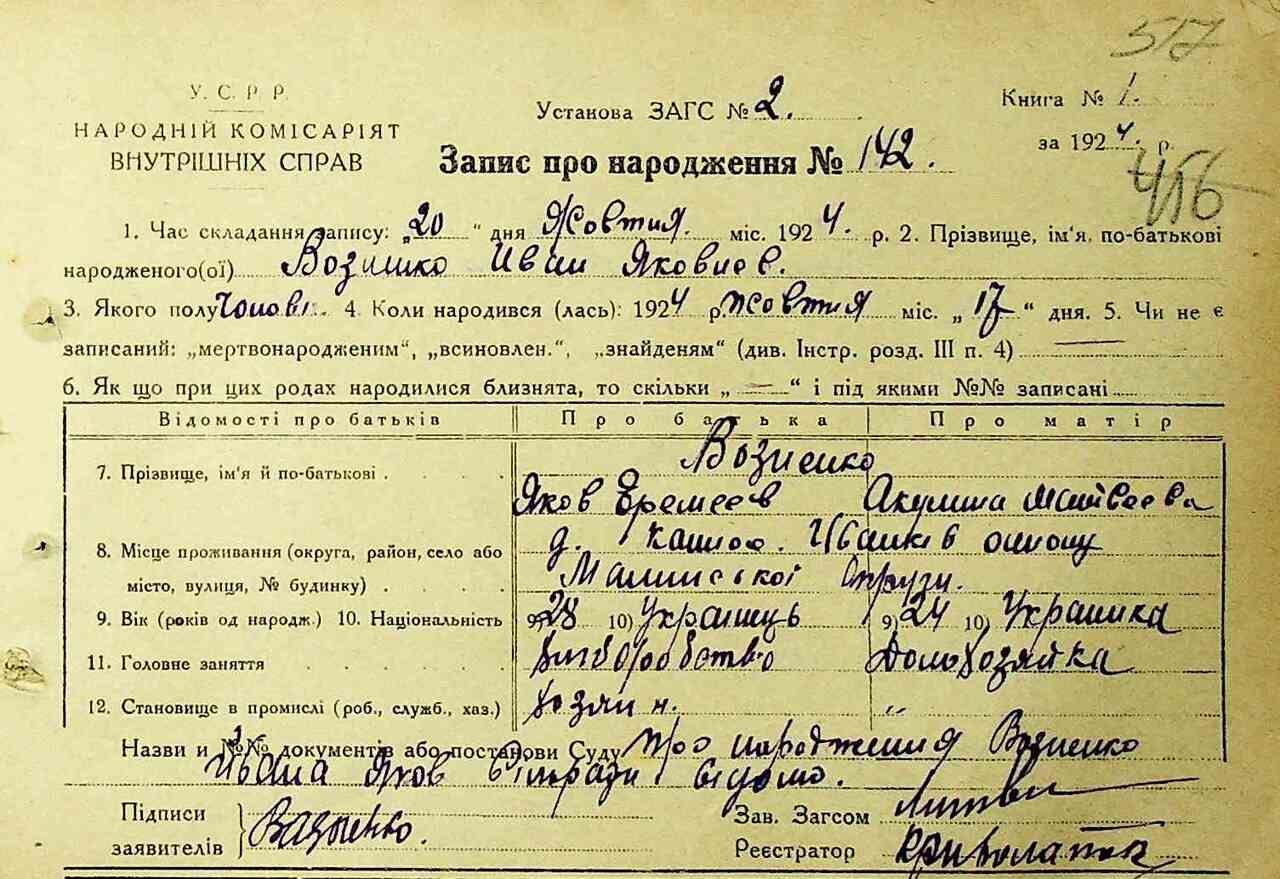 517
У. С. Р. Р.
НАРОДНІЙ КОМІСАРІЯТ
ВНУТРІШНІХ СПРАВ
Установа ЗАГС № 2.
Книга № 1.
за 1924. р.
Запис про народження № 142.
416
1. Час складання запису: „20" дня Жовтня. міс. 1924. р. 2. Прізвище, ім'я, по-батькові
народженого(ої) Иван Яковлев.
3. Якого полу Чолові. 4. Коли народився (лась): 1924 р. жовтня міс. „17" дня. 5. Чи не є
записаний: „мертвонародженим", „всиновлен.", „знайденям" (див. Інстр. розд. III п. 4)
6. Як що при цих родах народилися близнята, то скільки „—" і під якими №№ записані
Відомості про батьків Про батька Про матір
7. Прізвище, ім'я й по-батькові Возненко
Яков Еремеев Акулина Матвеева
8. Місце проживання (округа, район, село або
місто, вулиця, № будинку) Малинської Округи.
9. Вік (років од народж.) 10. Національність 9) 28 10) Українець 9) 24 10) Українка
11. Головне заняття Хліборобство Домохозяйка
12. Становище в промислі (роб., служб., хаз.) Хозяин. „
Назви и №№ документів або постанови Суду Про народження Возненко
Ивана Яков відомо.
Підписи
заявителів Возненко.
Зав. Загсом
Реєстратор